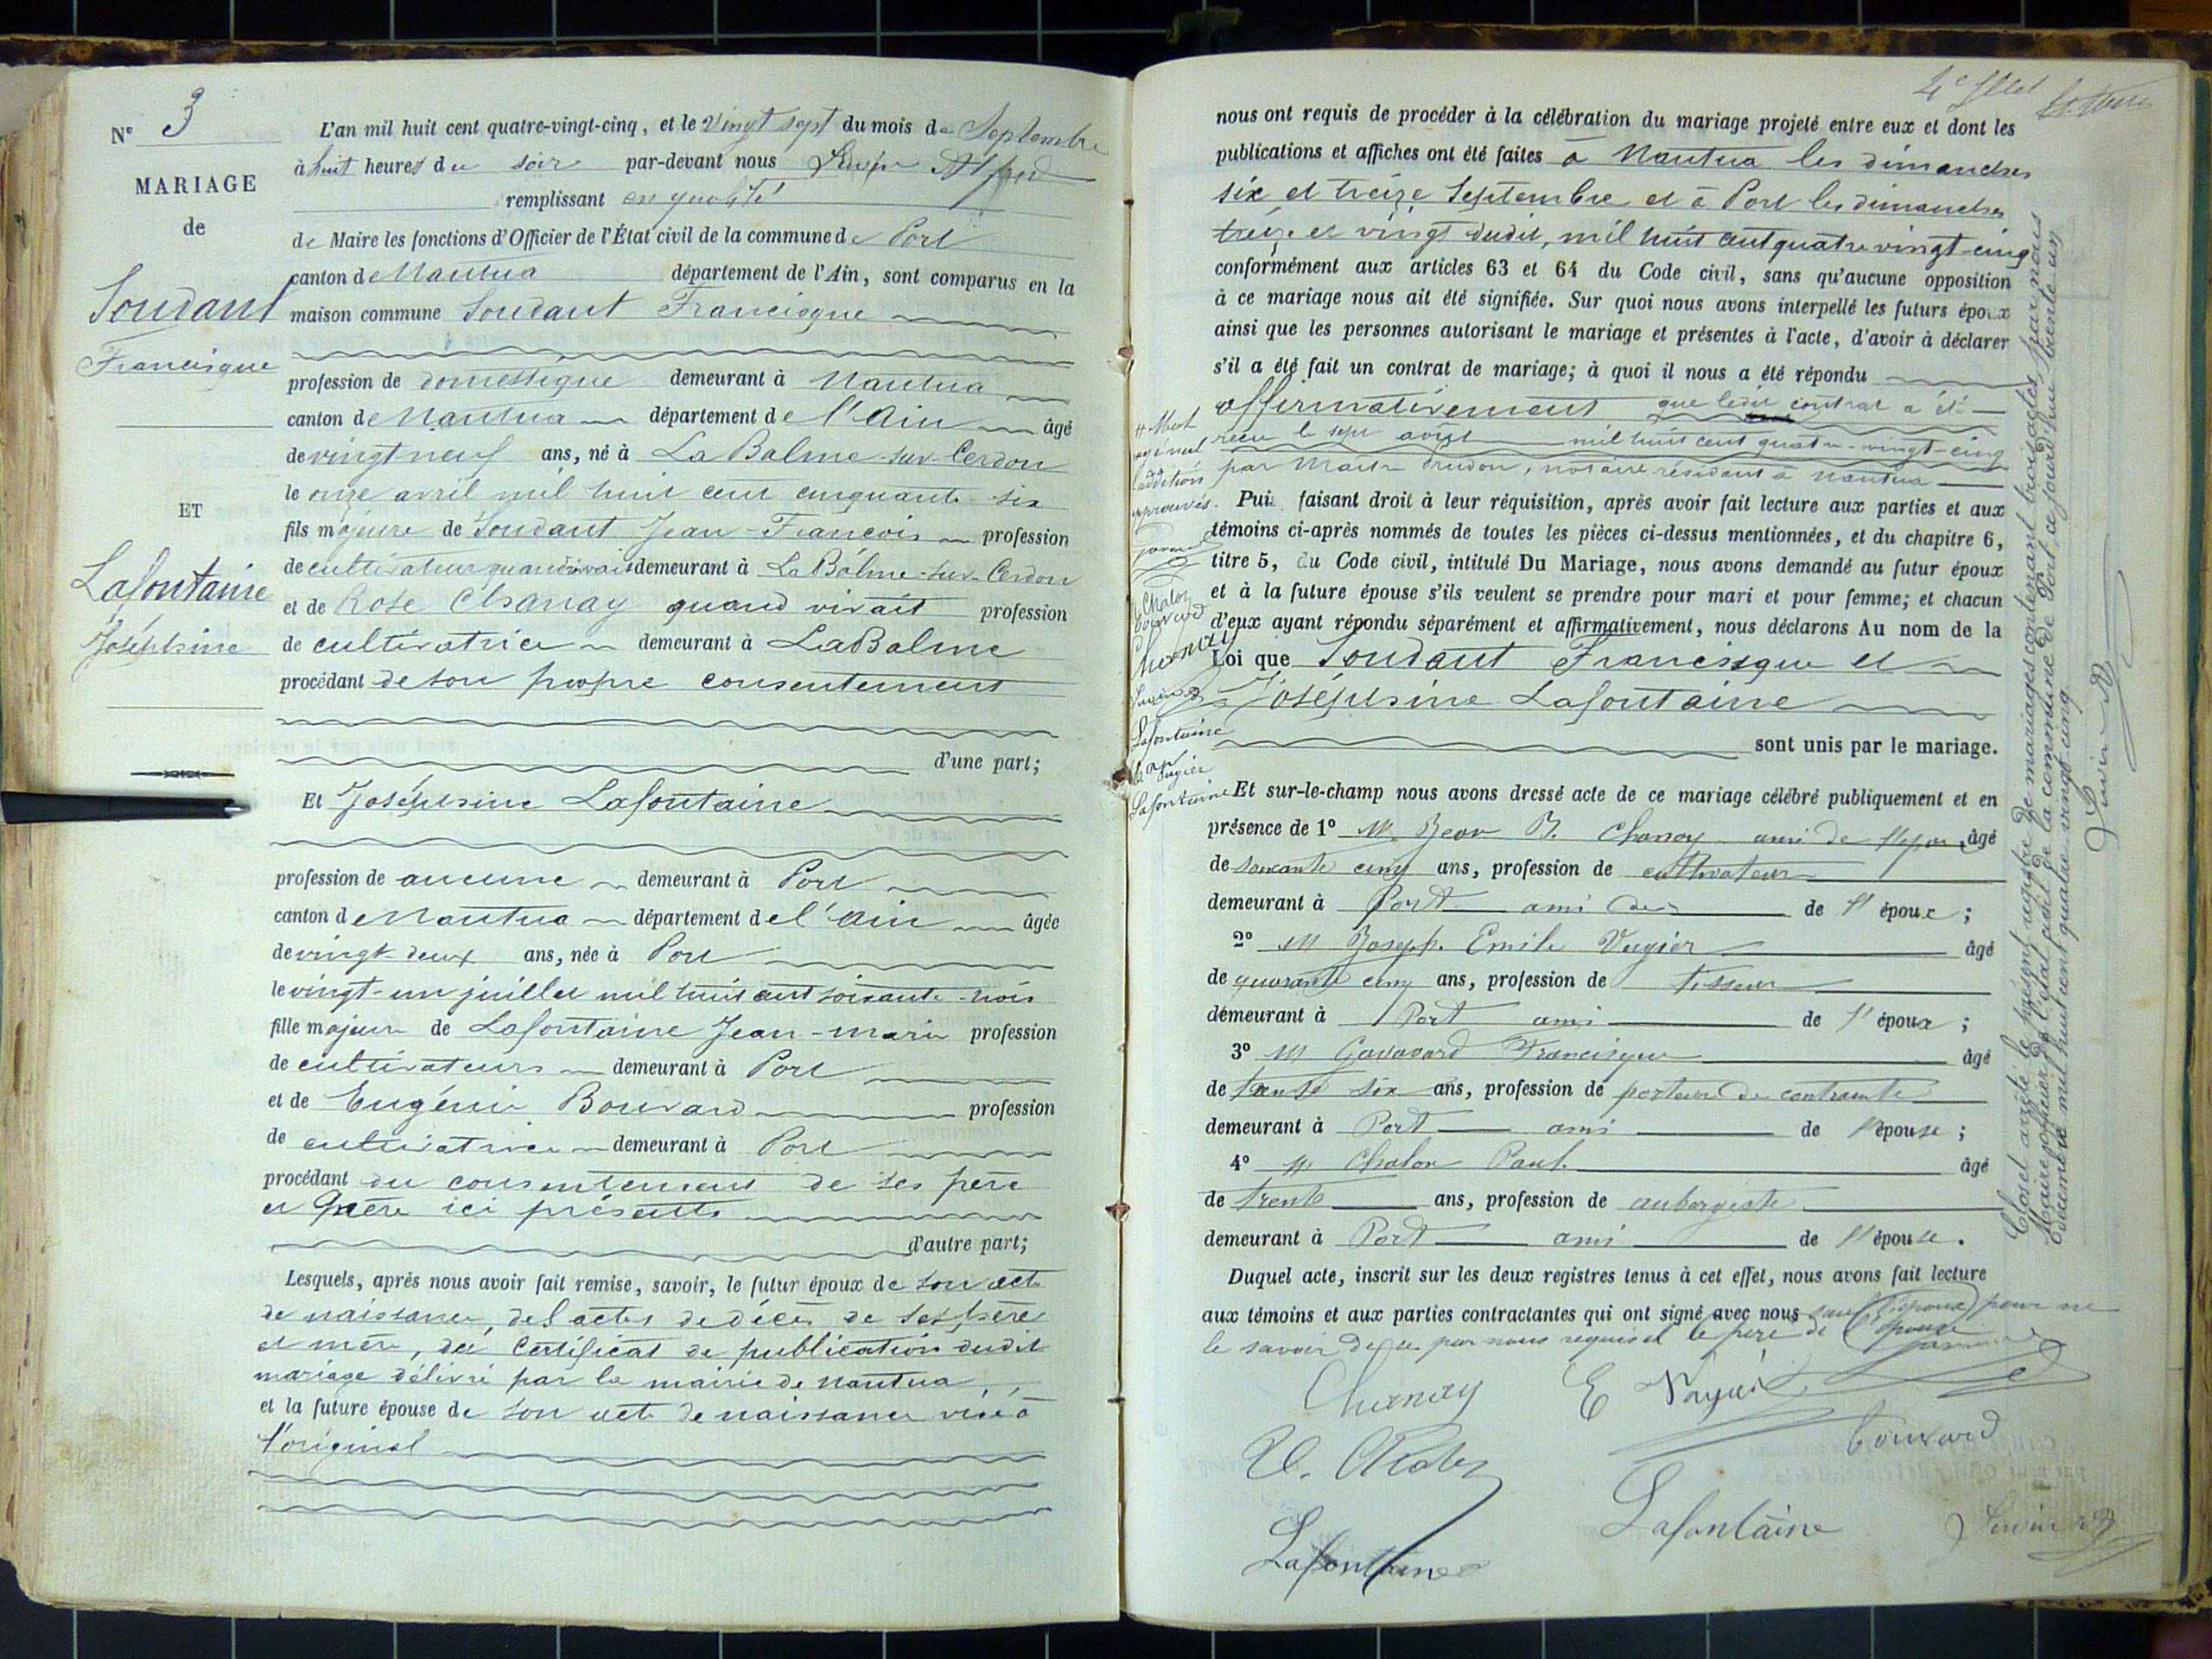 N° 3
MARIAGE
de
Soudant
Francisque
ET
Lafontaine
Joséphine
L'an mil huit cent quatre-vingt-cinq, et le Vingt sept du mois de Septembre
à huit heures du soir par-devant nous
remplissant en qualité
de Maire les fonctions d'Officier de l'État civil de la commune de Port
canton de Nantua département de l'Ain, sont comparus en la
maison commune Soudant Francisque
profession de domestique demeurant à Nantua
canton de Nantua département de l'Ain âgé
de vingt neuf ans, né à La Balme-sur-Cerdon
le onze avril mil huit cent cinquante-six
fils majeure de Soudant Jean-François profession
de cultivateur quand vivait demeurant à La Balme-sur-Cerdon
et de Rose Chanay quand vivait profession
de cultivatrice demeurant à La Balme
procédant de son propre consentement
d'une part;
Et Joséphine Lafontaine
profession de aucune demeurant à Port
canton de Nantua département de l'Ain âgée
de vingt-deux ans, née à Port
le vingt-un juillet mil huit cent soixante-trois
fille majeure de Lafontaine Jean-Marie profession
de cultivateurs demeurant à Port
et de Eugénie Bouvard profession
de cultivatrice demeurant à Port
procédant du consentement de ses père
et mère ici présents
d'autre part;
Lesquels, après nous avoir fait remise, savoir, le futur époux de son acte
de naissance, des actes de décès de ses père
et mère, du certificat de publication dudit
mariage délivré par la mairie de Nantua,
et la future épouse de son acte de naissance visé à
l'original
nous ont requis de procéder à la célébration du mariage projeté entre eux et dont les
publications et affiches ont été faites à Nantua les dimanches
six et treize Septembre et à Port les dimanches
treize et vingt dudit, mil huit cent quatre vingt-cinq
conformément aux articles 63 et 64 du Code civil, sans qu'aucune opposition
à ce mariage nous ait été signifiée. Sur quoi nous avons interpellé les futurs époux
ainsi que les personnes autorisant le mariage et présentes à l'acte, d'avoir à déclarer
s'il a été fait un contrat de mariage; à quoi il nous a été répondu
affirmativement que ledit contrat a été
reçu le sept août mil huit cent quatre-vingt-cinq
par Maître Prudon, notaire résidant à Nantua
Puis faisant droit à leur réquisition, après avoir fait lecture aux parties et aux
témoins ci-après nommés de toutes les pièces ci-dessus mentionnées, et du chapitre 6,
titre 5, du Code civil, intitulé Du Mariage, nous avons demandé au futur époux
et à la future épouse s'ils veulent se prendre pour mari et pour femme; et chacun
d'eux ayant répondu séparément et affirmativement, nous déclarons Au nom de la
Loi que Soudant Francisque et
Joséphine Lafontaine
sont unis par le mariage.
Et sur-le-champ nous avons dressé acte de ce mariage célébré publiquement et en
présence de 1° M. Jean B. Chanay ami de l'époux âgé
de soixante cinq ans, profession de cultivateur
demeurant à Port ami de l'époux;
2° M Joseph Emile Vugier âgé
de quarante cinq ans, profession de tisseur
demeurant à Port ami de l'époux;
3° M Gavavard Francisque âgé
de trente six ans, profession de porteur de contrainte
demeurant à Port ami de l'épouse;
4° M Chalon Paul âgé
de trente ans, profession de aubergiste
demeurant à Port ami de l'épouse.
Duquel acte, inscrit sur les deux registres tenus à cet effet, nous avons fait lecture
aux témoins et aux parties contractantes qui ont signé avec nous sauf l'époux pour ne
le savoir de ce par nous requis et le père de l'épouse
Chanay
Bouvard
Lafontaine
Lafontaine
approuvés
Chanay
Lafontaine
Vugier
Lafontaine
Clos et arrêté le présent registre de mariages contenant trois actes, par nous
Maire officier de l'état civil de la commune de Port, ce jourd'hui trente un
décembre mil huit cent quatre vingt-cinq